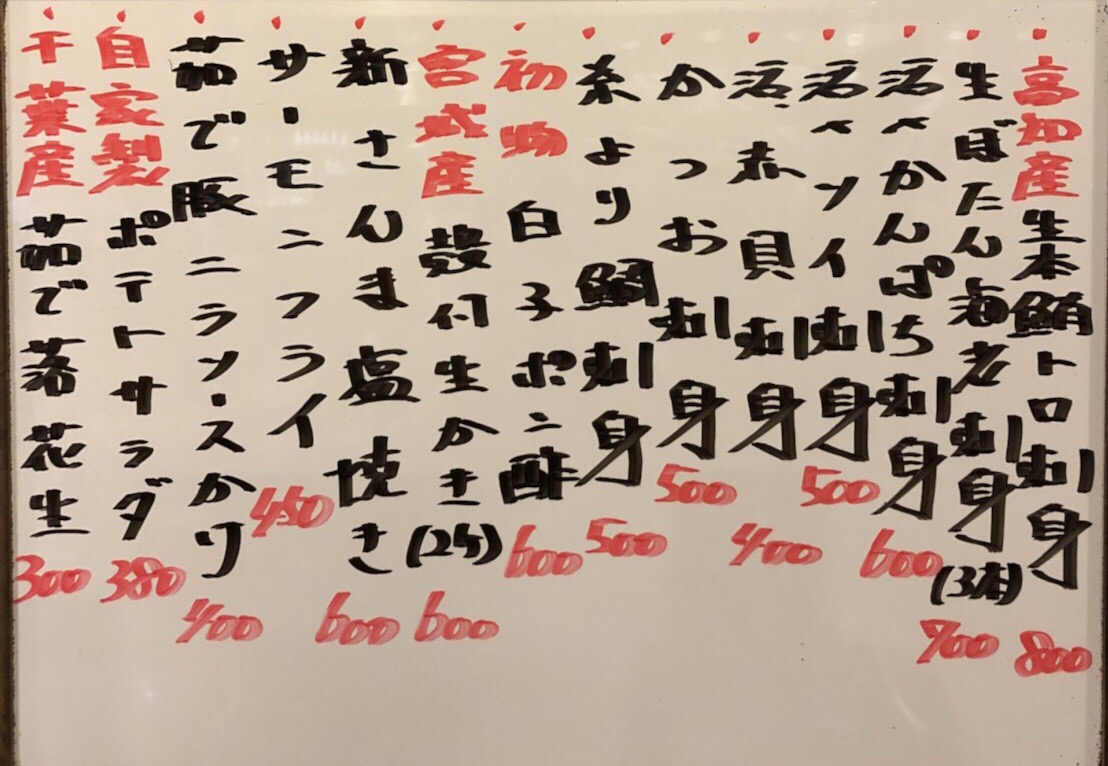 高知産 生本鮪トロ刺身 800
生ぼたん海老刺身(3本) 700
活〆かんぱち刺身 600
活〆ソイ刺身 500
活赤貝刺身 400
かつお刺身 500
糸より鯛刺身 500
初物 白子ポン酢 600
宮城産 殻付生かき(2ケ) 600
新さんま塩焼き 600
サーモンフライ 450
茹で豚ニラソースかけ 400
自家製 ポテトサラダ 380
千葉産 茹で落花生 300